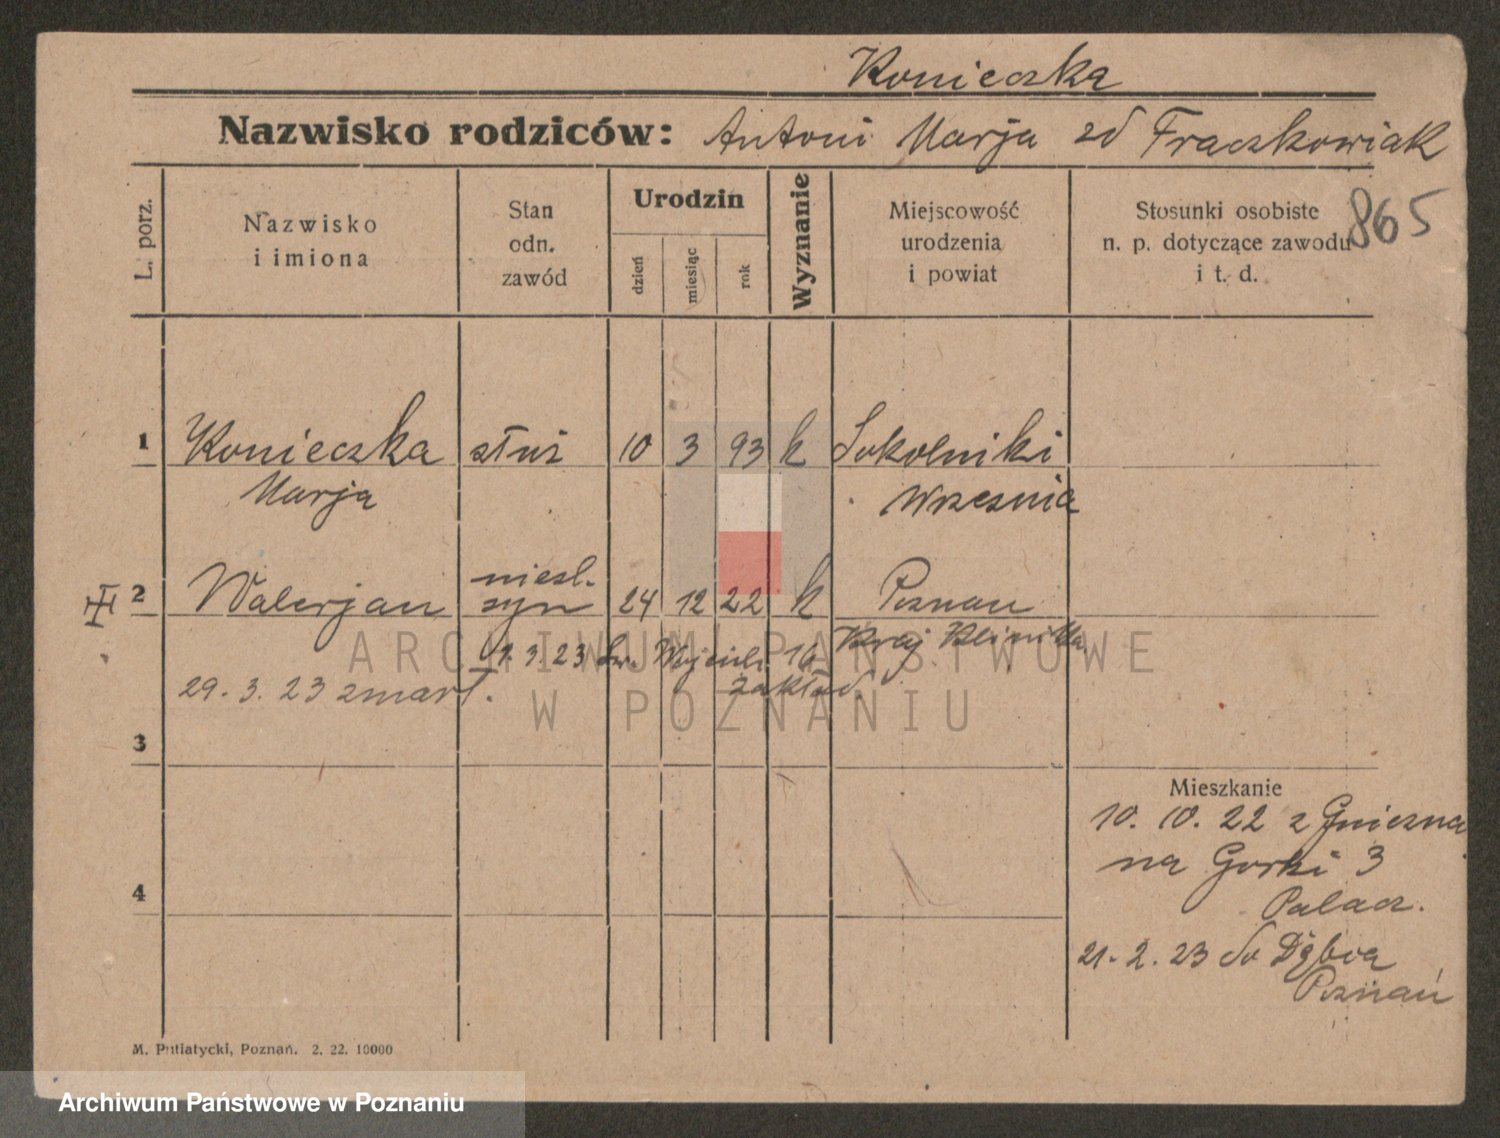 Konieczka
Nazwisko rodziców: Antoni Marja zd Frączkowiak
865
L. porz.
Nazwisko
i imiona
Stan
odn.
zawód
Urodzin
dzień
miesiąc
rok
Wyznanie
Miejscowość
urodzenia
i powiat
Stosunki osobiste
n. p. dotyczące zawodu
i t. d.
1 Konieczka służ 10 3 93 k Sokolniki
Marja Wrzesnia
2 Walerjan nieśl. syn 24 12 22 k Poznan
1. 3 23 Św. Wojciech 16 Kraj Klinika
29. 3. 23 zmarł. zakład
3
4
Mieszkanie
10. 10. 22 z Gniezna
na Gorki 3
Palacz.
21. 2. 23 do Dębca
Poznań
M. Putiatycki, Poznań. 2. 22. 10000
ARCHIWUM PAŃSTWOWE
W POZNANIU
Archiwum Państwowe w Poznaniu